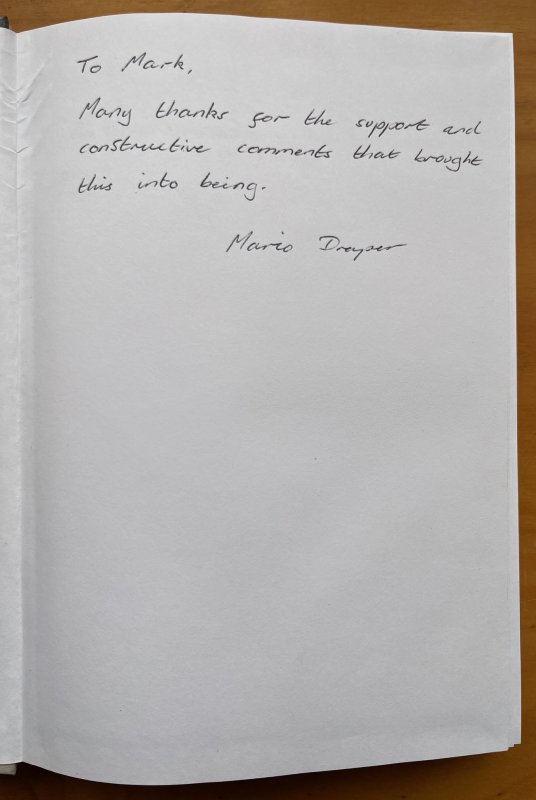 To Mark,
Many thanks for the support and
constructive comments that brought
this into being.
Mario Draper